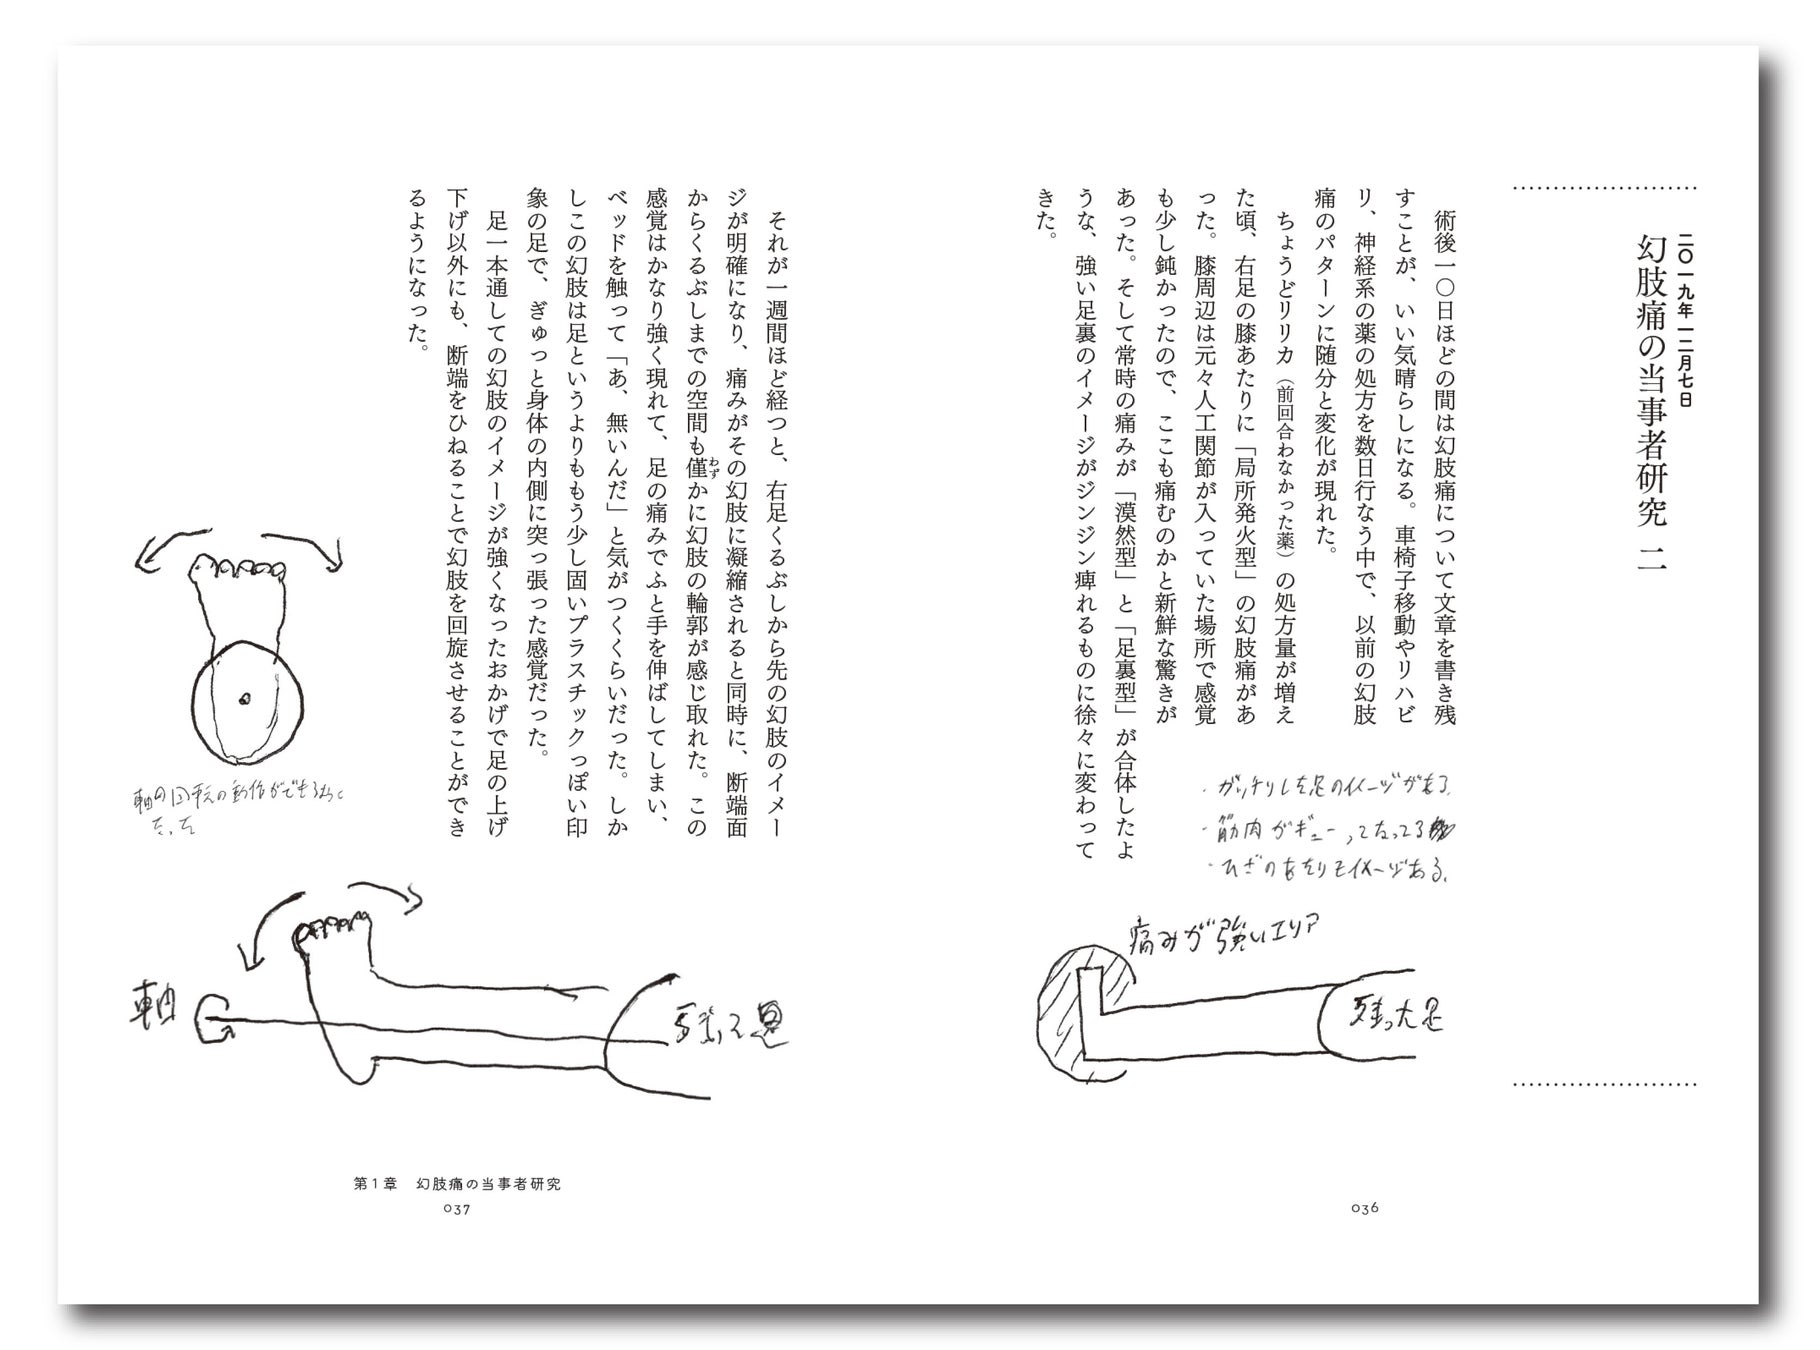 二〇一九年一二月七日
幻肢痛の当事者研究 二
術後一〇日ほどの間は幻肢痛について文章を書き残
すことが、いい気晴らしになる。車椅子移動やリハビ
リ、神経系の薬の処方を数日行なう中で、以前の幻肢
痛のパターンに随分と変化が現れた。
ちょうどリリカ（前回合わなかった薬）の処方量が増え
た頃、右足の膝あたりに「局所発火型」の幻肢痛があ
った。膝周辺は元々人工関節が入っていた場所で感覚
も少し鈍かったので、ここも痛むのかと新鮮な驚きが
あった。そして常時の痛みが「漠然型」と「足裏型」が合体したよ
うな、強い足裏のイメージがジンジン痺れるものに徐々に変わって
きた。
・ガッチリした足のイメージがある。
・筋肉がギューってなってる
・ひざのあたりもイメージある。
痛みが強いエリア
残った足
036
それが一週間ほど経つと、右足くるぶしから先の幻肢のイメー
ジが明確になり、痛みがその幻肢に凝縮されると同時に、断端面
からくるぶしまでの空間も僅かに幻肢の輪郭が感じ取れた。この
わず
感覚はかなり強く現れて、足の痛みでふと手を伸ばしてしまい、
ベッドを触って「あ、無いんだ」と気がつくくらいだった。しか
しこの幻肢は足というよりももう少し固いプラスチックっぽい印
象の足で、ぎゅっと身体の内側に突っ張った感覚だった。
足一本通しての幻肢のイメージが強くなったおかげで足の上げ
下げ以外にも、断端をひねることで幻肢を回旋させることができ
るようになった。
軸の回転の動作ができるように
なった
軸
残った足
第1章 幻肢痛の当事者研究
037